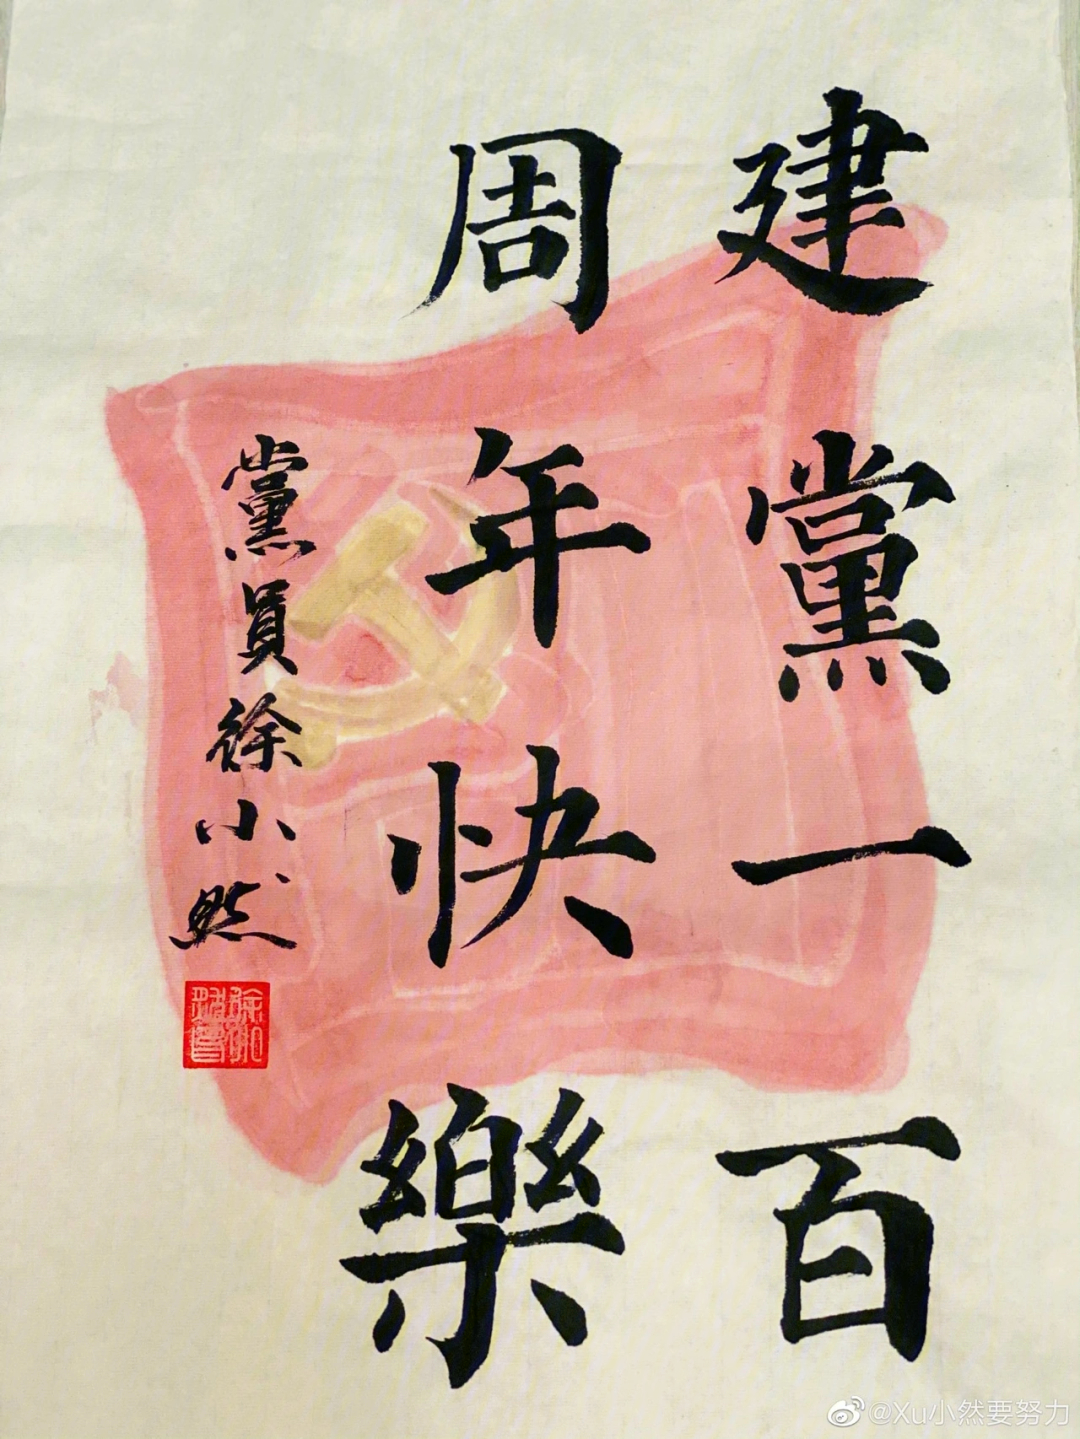 建黨一百
周年快樂
黨員徐小然
@Xu小然要努力